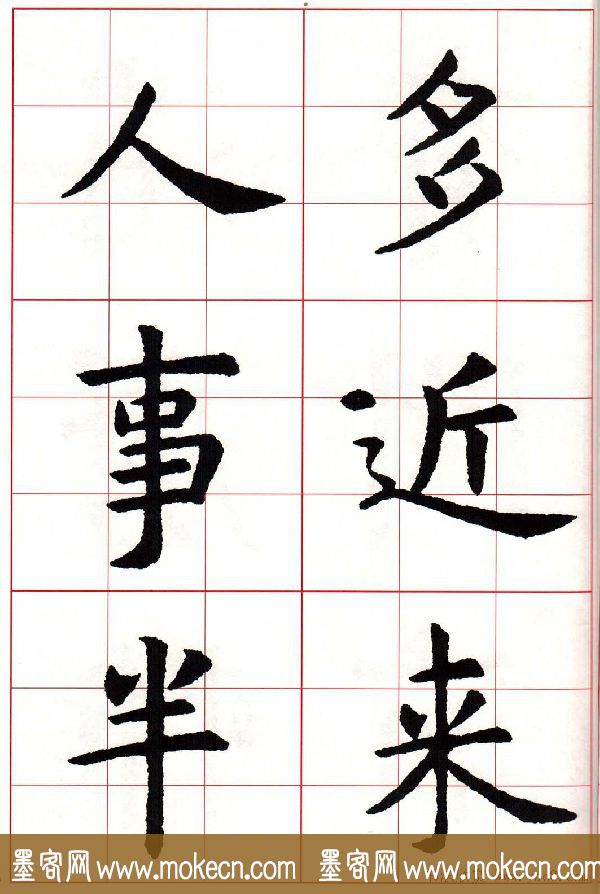 多近来
人事半
墨客网 www.mokecn.com 墨客网 www.mokecn.com